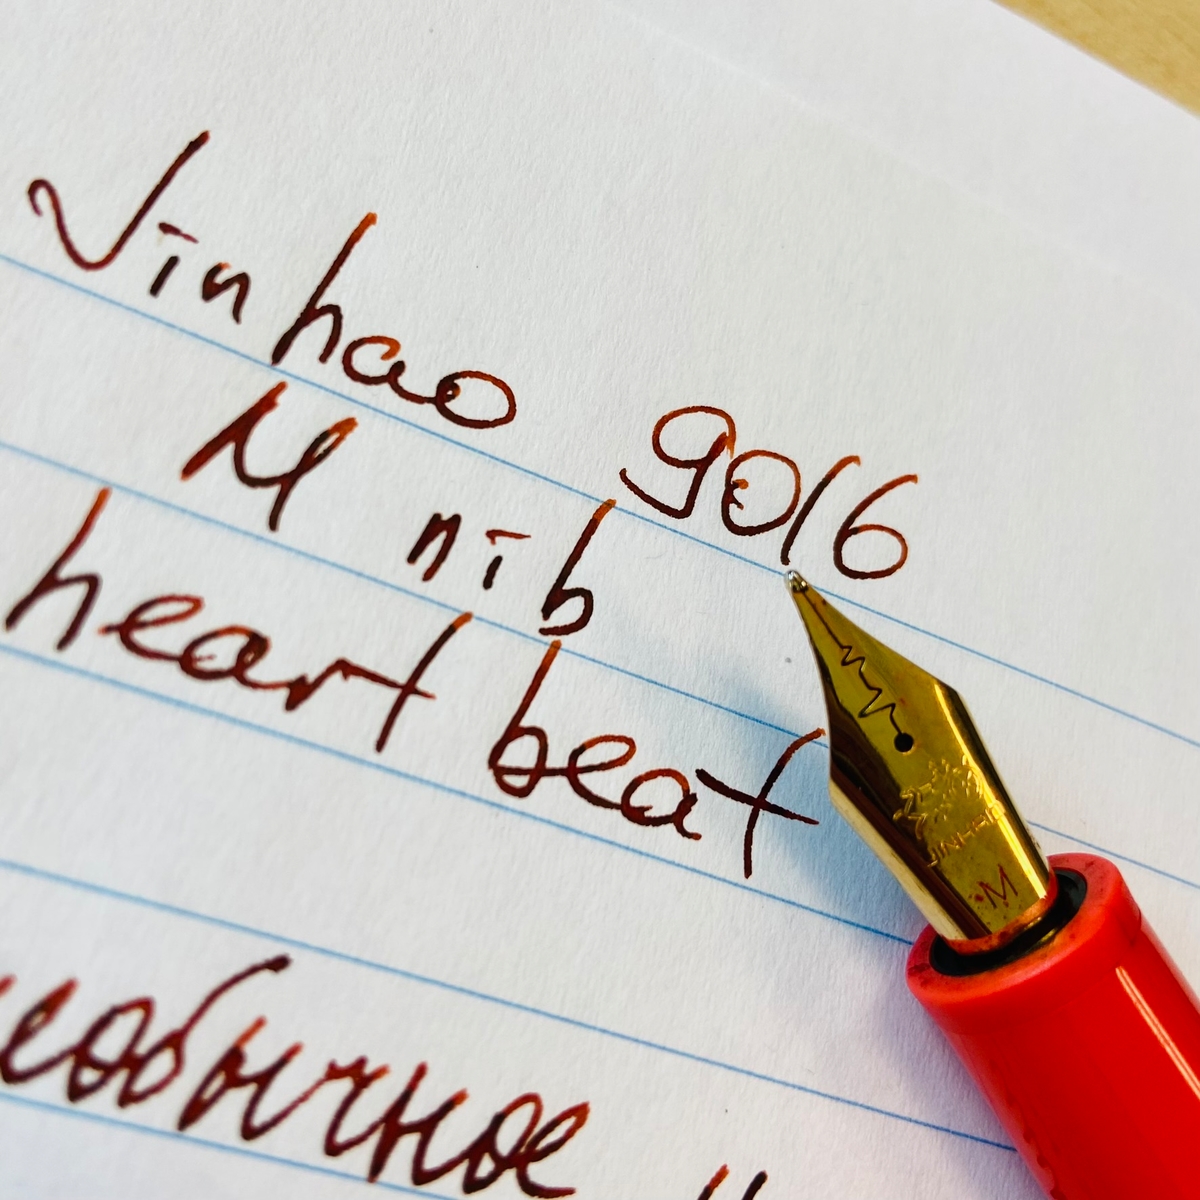 Jinhao 9016
M nib
heart beat
необычное
JINHAO
M